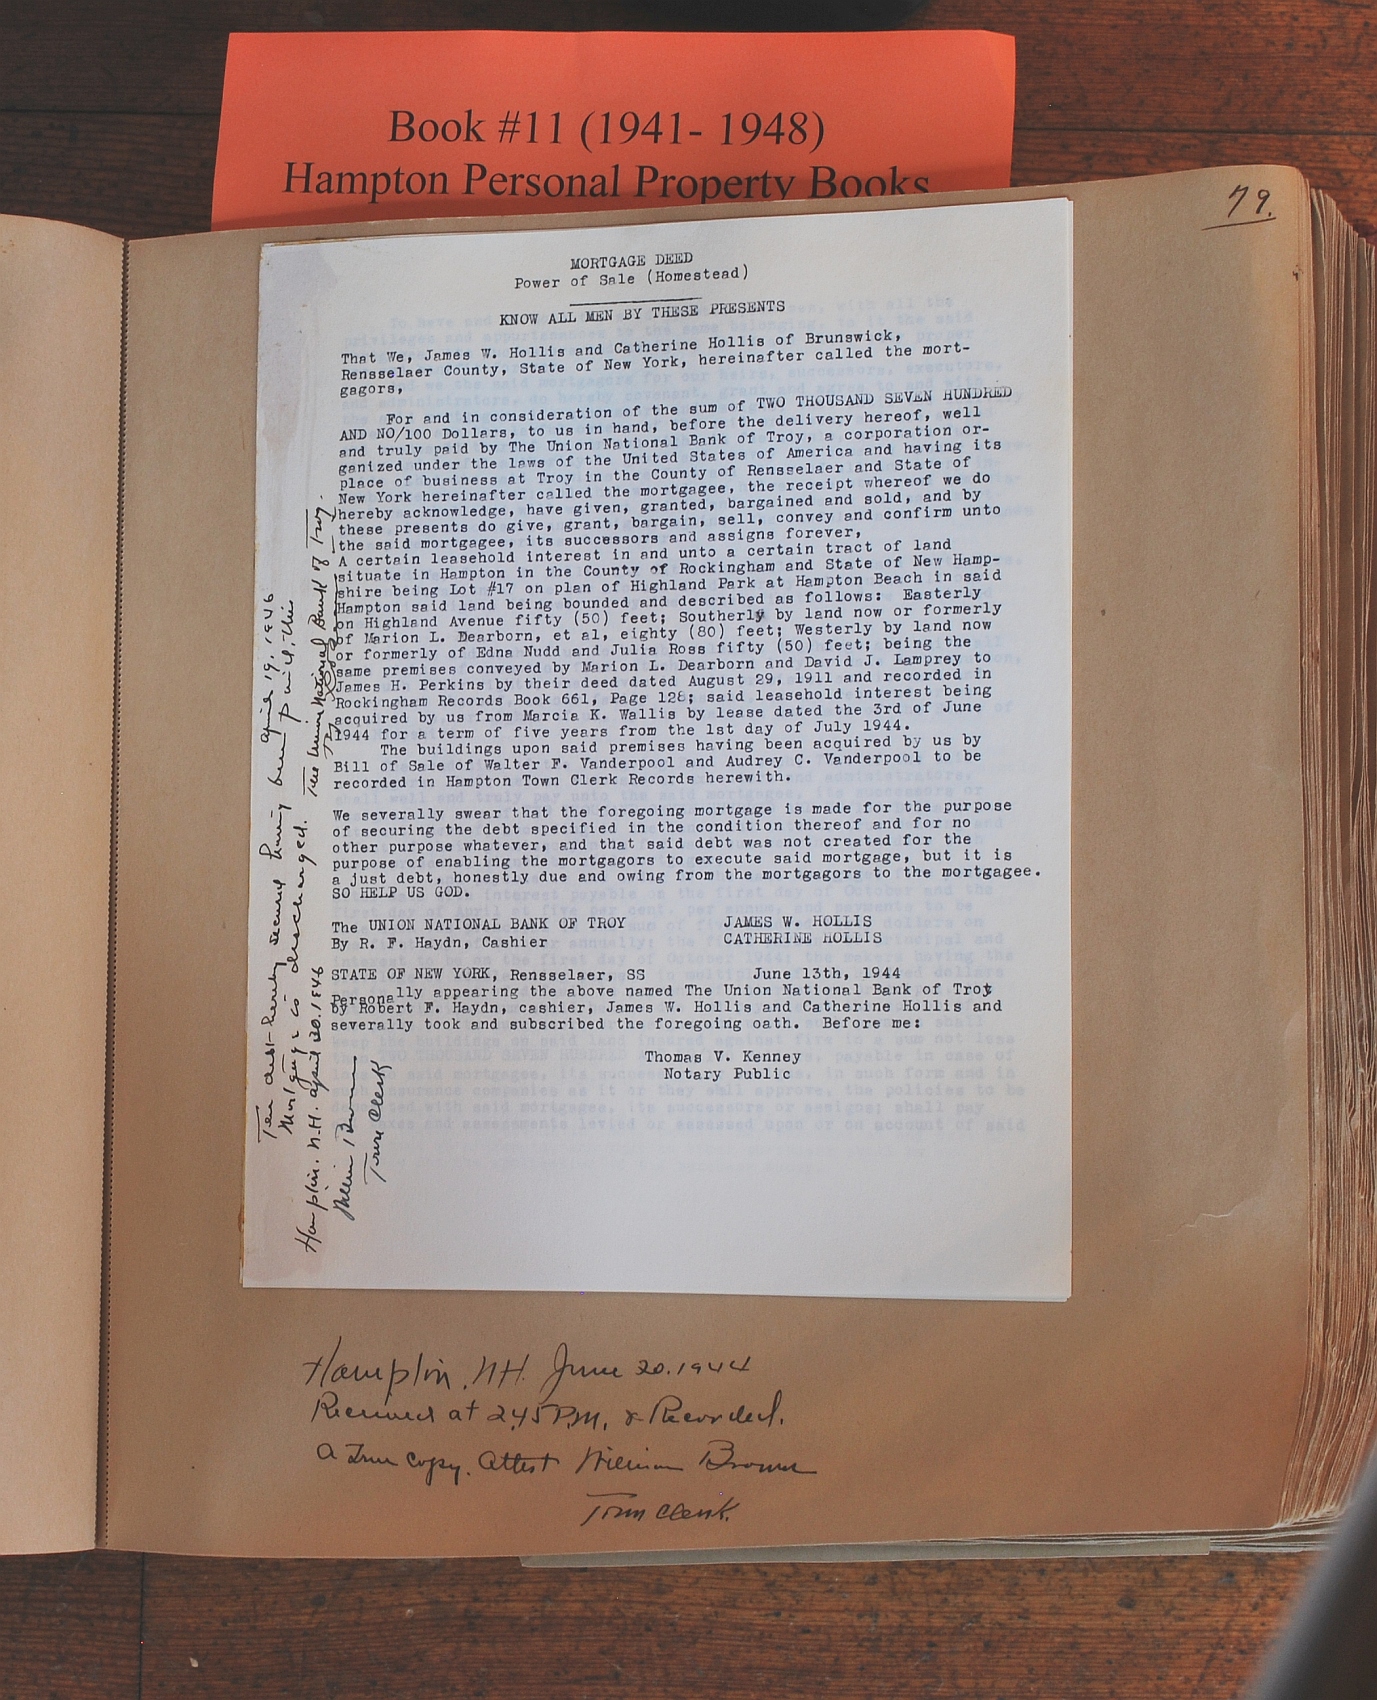 Book #11 (1941- 1948)
Hampton Personal Property Books
79.
MORTGAGE DEED
Power of Sale (Homestead)
KNOW ALL MEN BY THESE PRESENTS
That We, James W. Hollis and Catherine Hollis of Brunswick,
Rensselaer County, State of New York, hereinafter called the mort-
gagors,
For and in consideration of the sum of TWO THOUSAND SEVEN HUNDRED
AND NO/100 Dollars, to us in hand, before the delivery hereof, well
and truly paid by The Union National Bank of Troy, a corporation or-
ganized under the laws of the United States of America and having its
place of business at Troy in the County of Rensselaer and State of
New York hereinafter called the mortgagee, the receipt whereof we do
hereby acknowledge, have given, granted, bargained and sold, and by
these presents do give, grant, bargain, sell, convey and confirm unto
the said mortgagee, its successors and assigns forever,
A certain leasehold interest in and unto a certain tract of land
situate in Hampton in the County of Rockingham and State of New Hamp-
shire being Lot #17 on plan of Highland Park at Hampton Beach in said
Hampton said land being bounded and described as follows: Easterly
on Highland Avenue fifty (50) feet; Southerly by land now or formerly
of Marion L. Dearborn, et al, eighty (80) feet; Westerly by land now
or formerly of Edna Nudd and Julia Ross fifty (50) feet; being the
same premises conveyed by Marion L. Dearborn and David J. Lamprey to
James H. Perkins by their deed dated August 29, 1911 and recorded in
Rockingham Records Book 661, Page 128; said leasehold interest being
acquired by us from Marcia K. Wallis by lease dated the 3rd of June
1944 for a term of five years from the 1st day of July 1944.
The buildings upon said premises having been acquired by us by
Bill of Sale of Walter F. Vanderpool and Audrey C. Vanderpool to be
recorded in Hampton Town Clerk Records herewith.
We severally swear that the foregoing mortgage is made for the purpose
of securing the debt specified in the condition thereof and for no
other purpose whatever, and that said debt was not created for the
purpose of enabling the mortgagors to execute said mortgage, but it is
a just debt, honestly due and owing from the mortgagors to the mortgagee.
SO HELP US GOD.
The UNION NATIONAL BANK OF TROY JAMES W. HOLLIS
By R. F. Haydn, Cashier CATHERINE HOLLIS
STATE OF NEW YORK, Rensselaer, SS June 13th, 1944
Personally appearing the above named The Union National Bank of Troy
by Robert F. Haydn, cashier, James W. Hollis and Catherine Hollis and
severally took and subscribed the foregoing oath. Before me:
Thomas V. Kenney
Notary Public
April 19, 1946
The debt hereby secured having been paid, this
Mortgage is discharged. The Union National Bank of Troy.
Hampton. N.H. April 20. 1946
William Brown
Town Clerk
Hampton, N.H. June 20. 1944
Received at 2.45 P.M. & Recorded.
A True Copy. Attest William Brown
Town Clerk.